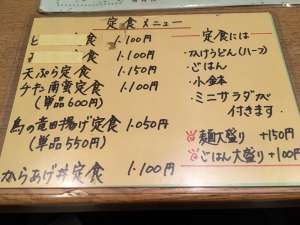 定食メニュー
と 食 1.100円
食 1.100円
天ぷら定食 1.150円
チキン南蛮定食 1.100円
(単品600円)
鳥の竜田揚げ定食 1.050円
(単品550円)
からあげ丼定食 1.100円
定食には
・かけうどん(ハーフ)
・ごはん
・小鉢
・ミニサラダが
付きます。
麺大盛り +150円
ごはん大盛り +100円